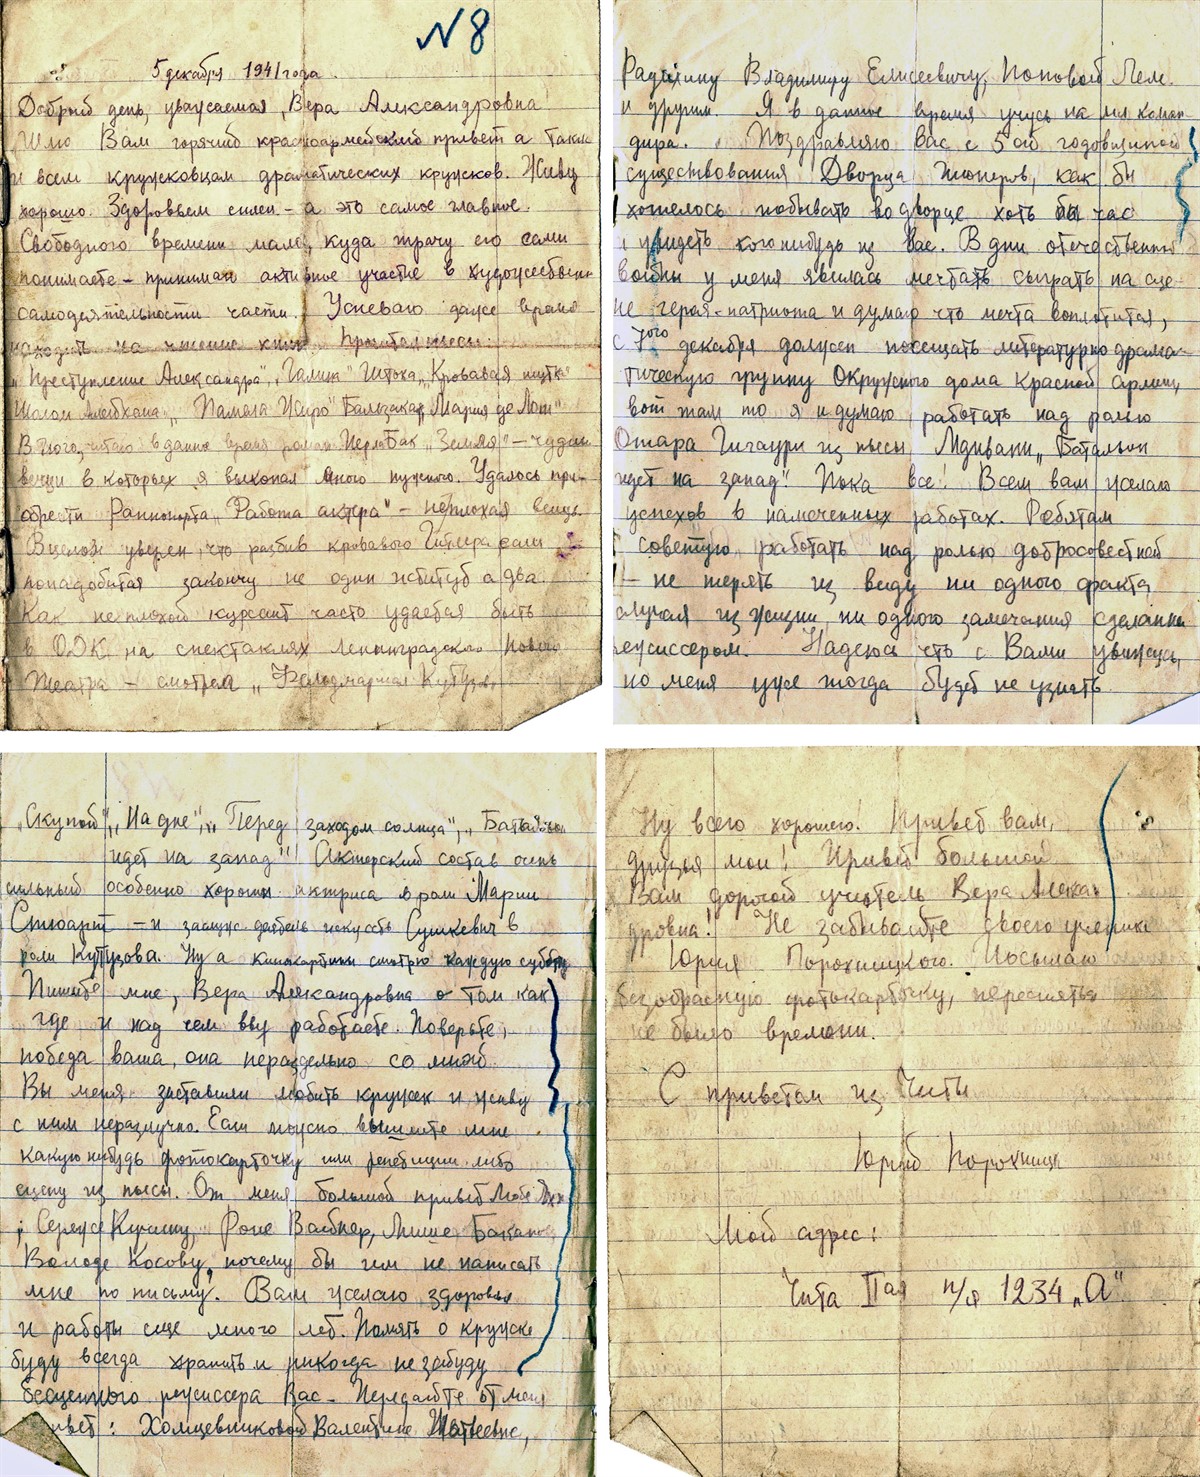 N 8
5 декабря 1941 года.
Добрый день, уважаемая, Вера Александровна!
Шлю Вам горячий красноармейский привет а также
и всем кружковцам драматических кружков. Живу
хорошо. Здоровьем силен – а это самое главное.
Свободного времени мало, куда трачу его сами
понимаете – принимаю активное участие в художествен
самодеятельности части. Успеваю даже время
находить на чтение книг.
"Преступление Александра", "Галица" Шпока, "Кровавая шутка"
Шолом Алейхама, "Бальзака,
в данное время роман Перл Бак "Земля" – чудные
вещи в которых я выкопал много нужного. Удалось при-
обрести Раппопорта "Работа актера" – неплохая вещь
Вцелом уверен что разбив кровавого Гитлера если
понадобится закончу не один иститут а два.
Как неплохой курсант часто удается быть
в ОДК на спектаклях Ленинградского Нового
Театра – смотрел "Фельдмаршал Кутузов,
"Скупой", "На дне", "Перед заходом солнца", "Батальон
идет на запад"! Актерский состав очень
сильный особенно хороши актриса в роли Марии
Стюарт – и заслуж. деятель искусств Сушкевич в
роли Кутузова. Ну а кинокартины смотрю каждую субботу
Пишите мне, Вера Александровна о том как
где и над чем вы работаете. Поверьте,
победа ваша, она нераздельно со мной
Вы меня заставили любить кружек и живу
с ним неразлучно. Если можно вышлите мне
какую нибудь фотокарточку или репетиции либо
сцену из пьесы. От меня большой привет Любе
Сереже Роне Вайнер, Мише
Володе Косову, почему бы им не написать
мне по письму. Вам желаю здоровья
и работы еще много лет. Память о кружке
буду всегда хранить и никогда не забуду
бесценного режиссера Вас – Передайте от меня
привет: Холщевниковой Валентине Матвеевне,
Радухину Владимиру Елисеевичу, Поповой Лели
и другим. Я в данное время учусь на мл коман-
дира. Поздравляю вас с 5ой годовщиной
существования Дворца Пионеров, как бы
хотелось побывать во дворце хоть бы час
и увидеть кого нибудь из вас. В дни отечественной
войны у меня явилась мечтать сыграть на сце-
не героя-патриота и думаю что мечта воплотится,
с 7ого декабря должен посещать литературно драма-
тическую группу Окружного дома красной армии,
вот там то я и думаю работать над ролью
Отара Гигаури из пьесы Мдивани "Батальон
идет на запад"! Пока все! Всем вам желаю
успехов в намеченных работах. Ребятам
советую работать над ролью добросовестной
– не терять из виду ни одного факта
случая из жизни, ни одного замечания сделанн
режиссером. Надеюсь что с Вами увижусь,
но меня уже тогда будет не узнать
Ну всего хорошего! Привет вам,
друзья мои! Привет большой
Вам дорогой учитель Вера Алекса-
дровна! Не забывайте своего ученика
Юрия Порохницкого. Посылаю
безобразную фотокарточку, пересняться
не было времени.
С приветом из Читы
Юрий Порохницк
Мой адрес:
Чита IIая п/я 1234 "А"